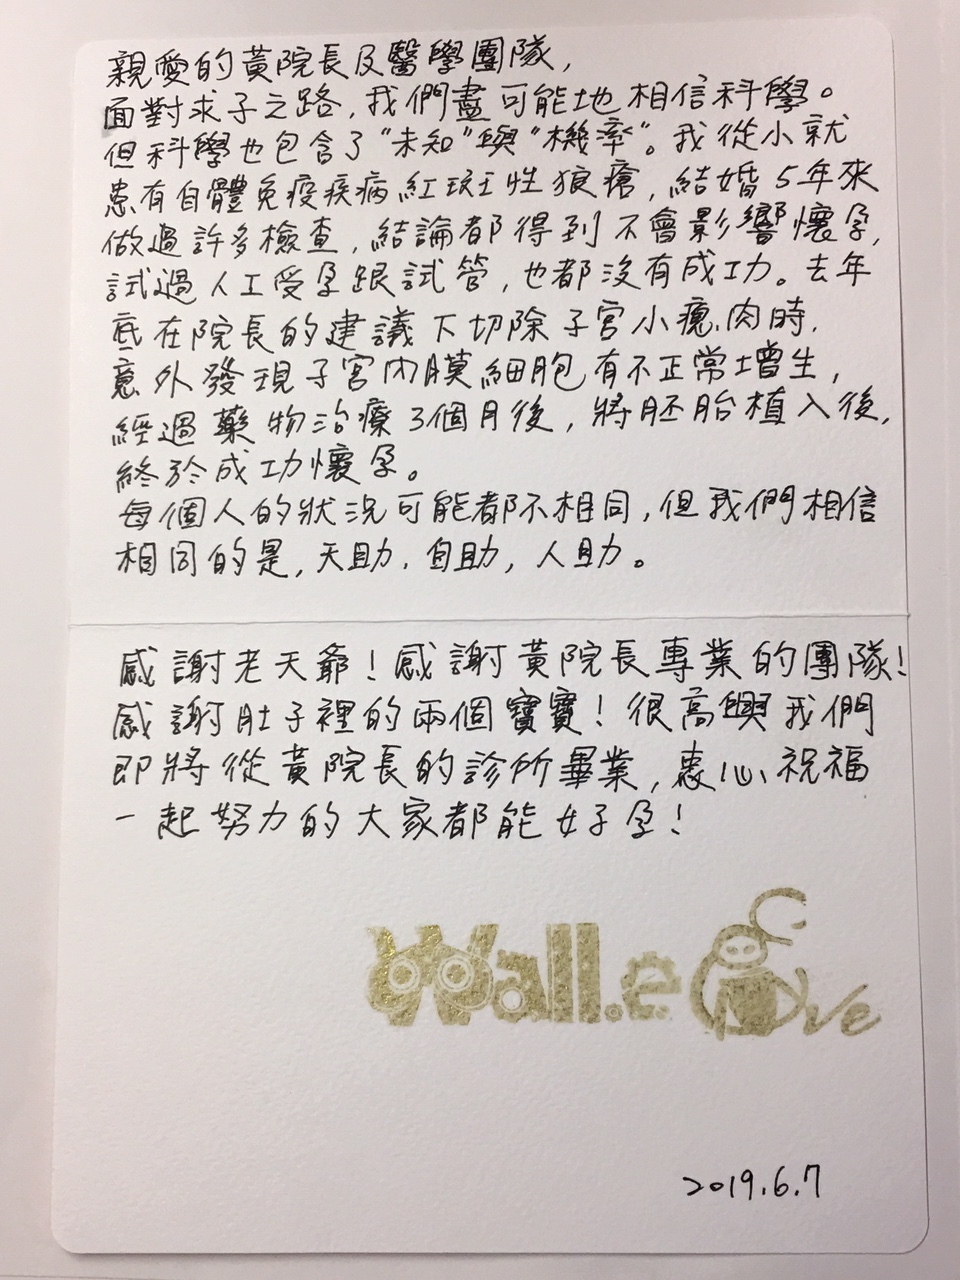 親愛的黃院長及醫學團隊,
面對求子之路,我們盡可能地相信科學。
但科學也包含了"未知"與"機率"。我從小就
患有自體免疫疾病紅斑性狼瘡,結婚5年來
做過許多檢查,結論都得到不會影響懷孕,
試過人工受孕跟試管,也都沒有成功。去年
底在院長的建議下切除子宮小瘜肉時,
意外發現子宮內膜細胞有不正常增生,
經過藥物治療3個月後,將胚胎植入後,
終於成功懷孕。
每個人的狀況可能都不相同,但我們相信
相同的是,天助,自助,人助。
感謝老天爺!感謝黃院長專業的團隊!
感謝肚子裡的兩個寶寶!很高興我們
即將從黃院長的診所畢業,衷心祝福
一起努力的大家都能好孕!
Wall.e Eve
2019.6.7